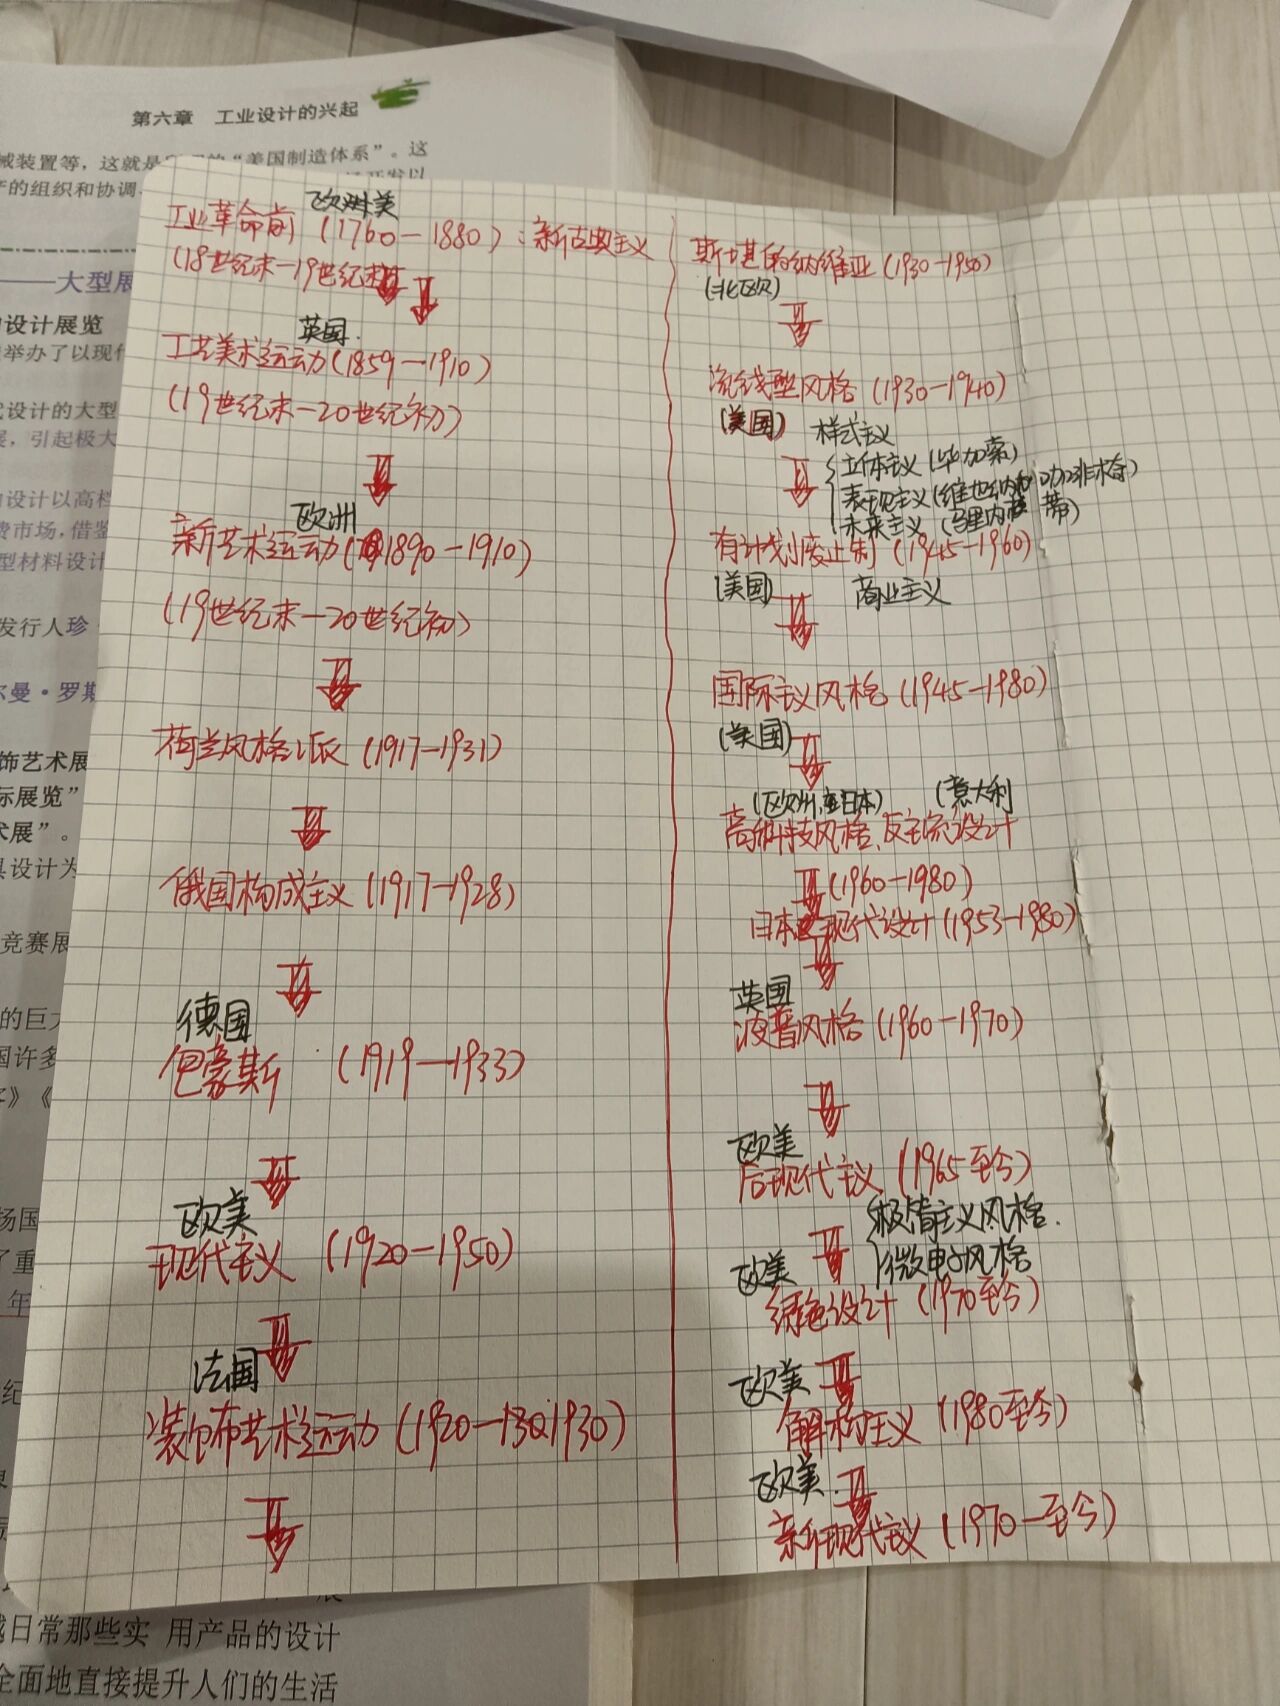 第六章 工业设计的兴起
械装置等，这就是
的“美国制造体系”。这
产的组织和协调
——大型展
设计展览
举办了以现代
设计的大型
展，引起极大
设计以高档
费市场，借鉴
型材料设计
发行人珍
尔曼·罗斯
饰艺术展
际展览”
术展”。
具设计为
竞赛展
的巨大
国许多
扬国
了重
年
日常那些实 用产品的设计
全面地直接提升人们的生活
欧洲美
工业革命前（1760－1880）：新古典主义
（18世纪末－19世纪末）
英国
工艺美术运动（1859－1910）
（19世纪末－20世纪初）
欧洲
新艺术运动（1890－1910）
（19世纪末－20世纪初）
荷兰风格派（1917－1931）
俄国构成主义（1917－1928）
德国
包豪斯 （1919－1933）
欧美
现代主义 （1920－1950）
法国
装饰艺术运动（1920－1930）
斯堪的纳维亚（1930－1950）
（北欧）
流线型风格（1930－1940）
（美国） 样式主义
立体主义（毕加索）
表现主义（维也纳
未来主义（马里内蒂）
有计划废止制（1945－1960）
（美国） 商业主义
国际主义风格（1945－1980）
（美国）
（欧洲、日本） （意大利
高科技风格、反主流设计
（1960－1980）
日本现代设计（1953－1980）
英国
波普风格（1960－1970）
欧美
后现代主义（1965至今）
极简主义风格．
微电子风格
欧美
绿色设计（1970至今）
欧美
解构主义（1980至今）
欧美．
新现代主义（1970－至今）